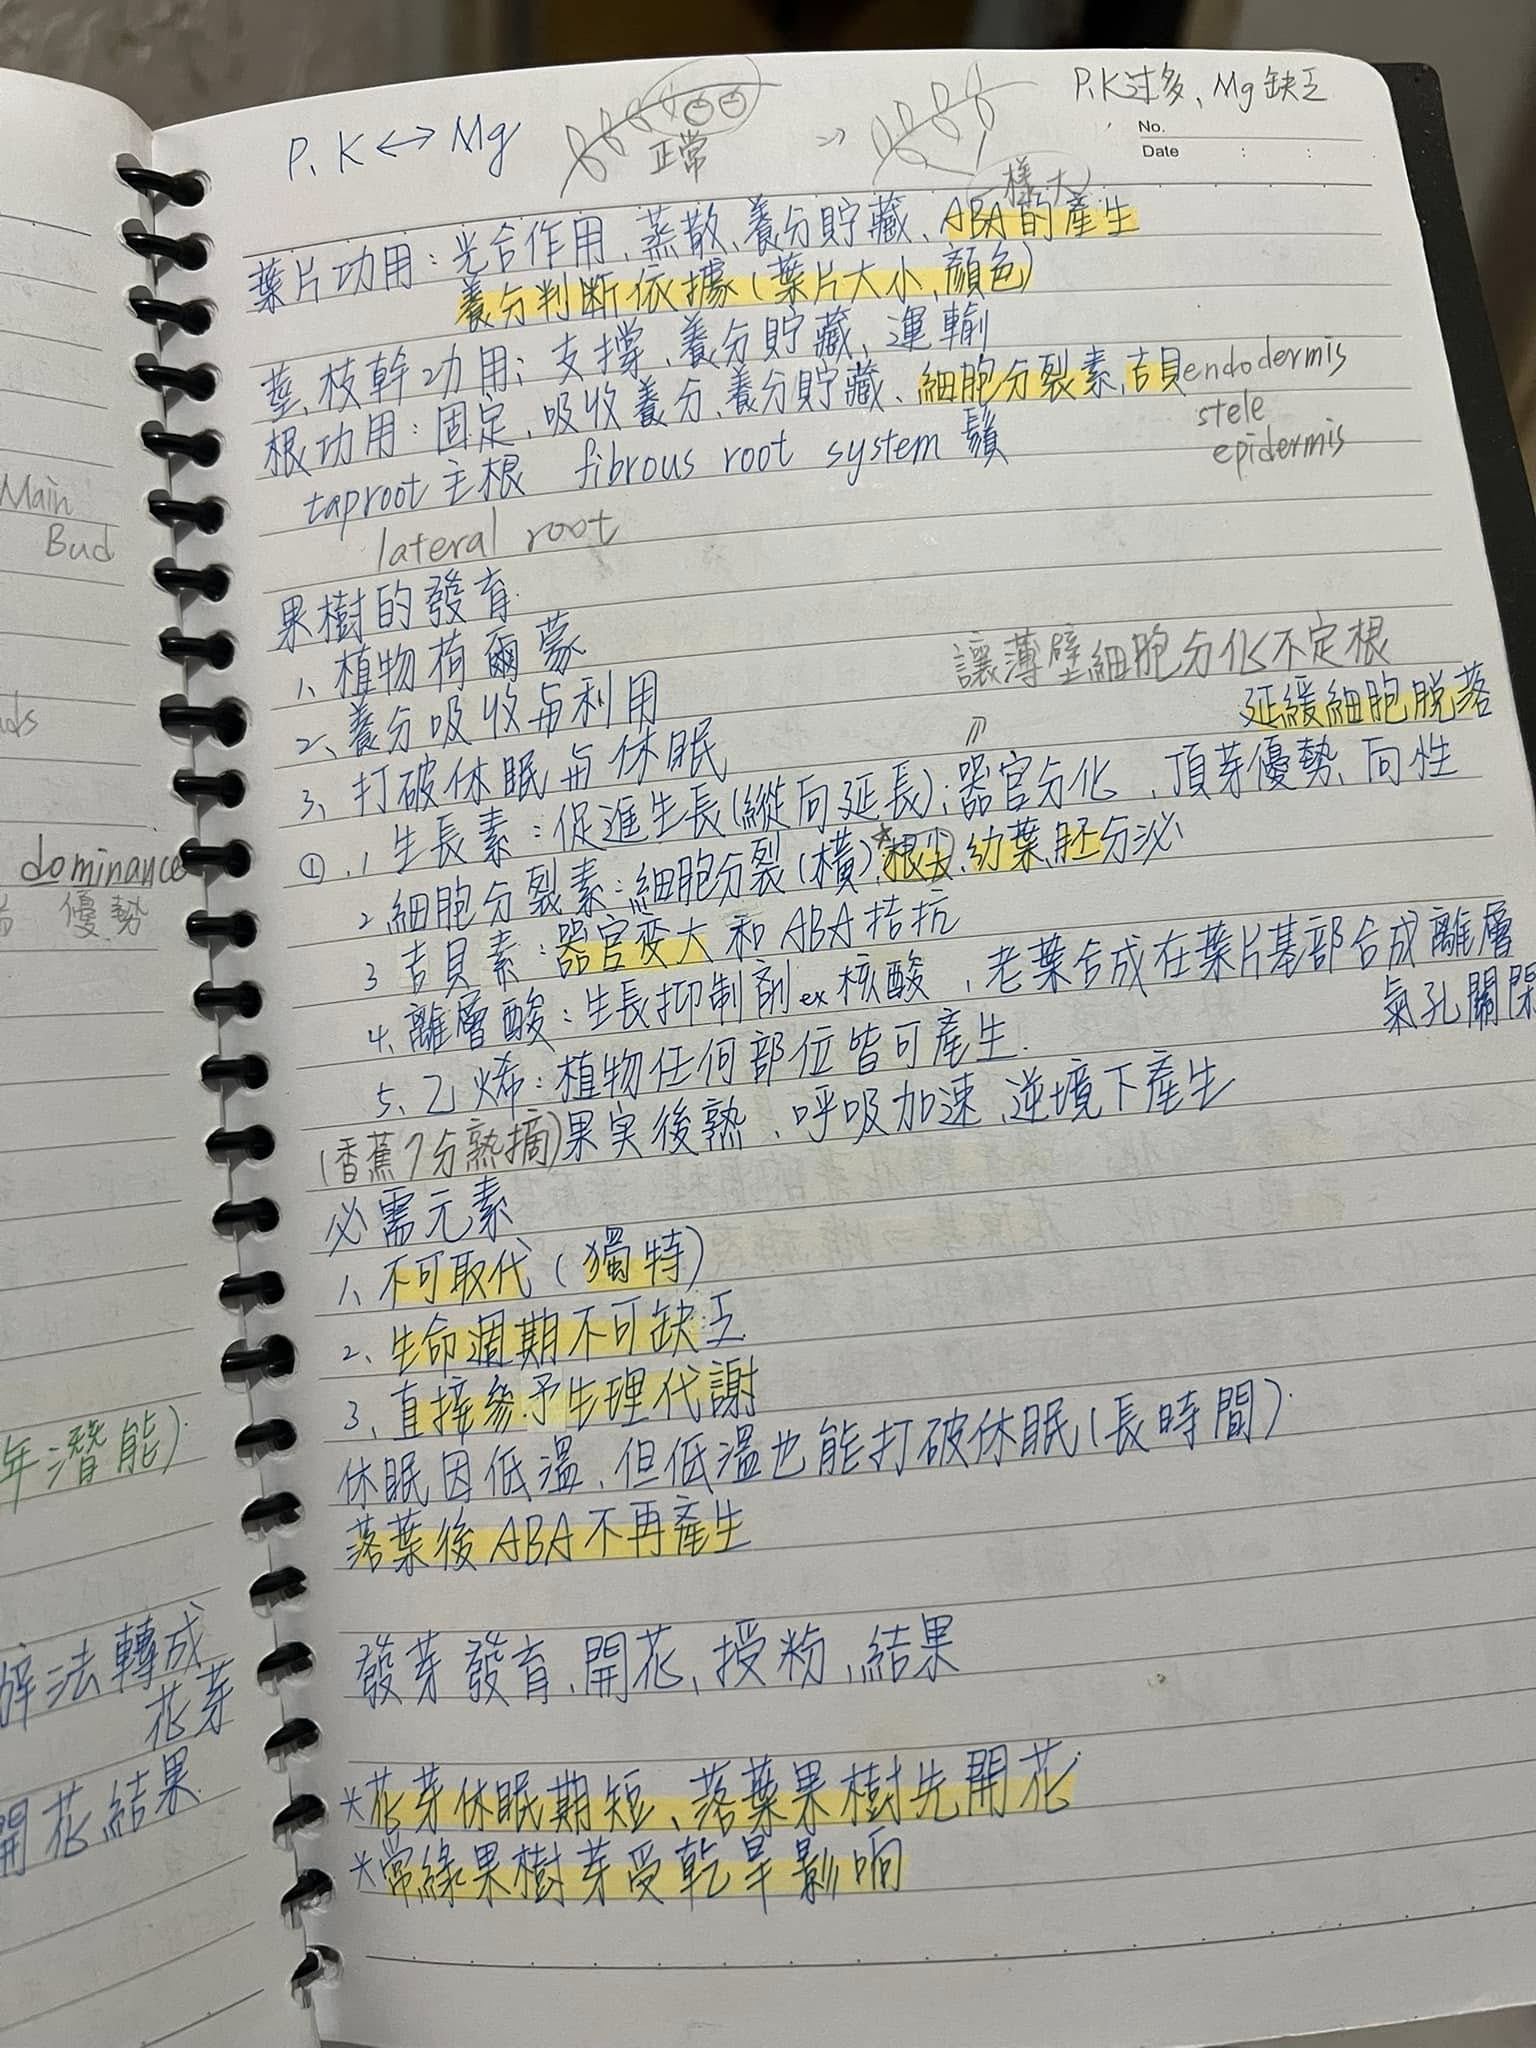 P.K过多、Mg缺乏
P.K↔Mg
正常
No.
Date : :
一樣大
葉片功用：光合作用、蒸散、養分貯藏、ABA的產生
養分判斷依據(葉片大小、顏色)
莖、枝幹功用：支撐、養分貯藏、運輸
根功用：固定、吸收養分、養分貯藏、細胞分裂素、吉貝
endodermis
stele
epidermis
taproot主根 fibrous root system 鬚
lateral root
果樹的發育
1、植物荷爾蒙
2、養分吸收与利用
3、打破休眠与休眠
讓薄壁細胞分化不定根
延緩細胞脫落
①.1 生長素：促進生長(縱向延長);器官分化、頂芽優勢、向性
2 細胞分裂素：細胞分裂(橫)、*根尖、幼葉、胚分泌
3 吉貝素：器官变大和ABA拮抗
4、離層酸：生長抑制劑ex核酸，老葉合成在葉片基部合成離層
氣孔關閉
5、乙烯：植物任何部位皆可產生.
(香蕉7分熟摘)果実後熟、呼吸加速、逆境下產生
必需元素
1、不可取代(獨特)
2、生命週期不可缺乏
3、直接參予生理代謝
休眠因低溫，但低溫也能打破休眠(長時間).
落葉後ABA不再產生
發芽發育、開花、授粉、結果
*花芽休眠期短、落葉果樹先開花
*常綠果樹芽受乾旱影响
Main
Bud
dominance
優勢
年潛能).
法轉成
花芽
開花結果.